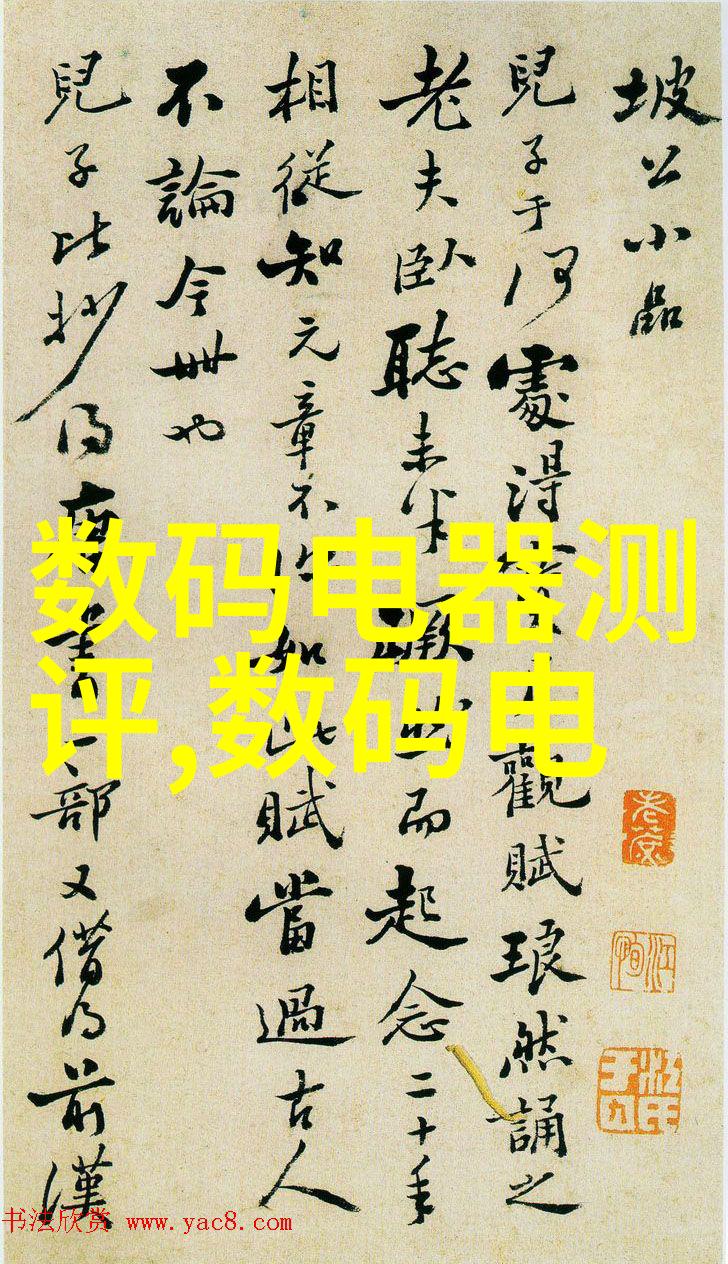 坡公小品
兒子于何處得寶月觀賦琅然誦之
老夫臥聽未半蹶然而起念二十年
相從知元章不 如此賦當過古人
不論今世也
兒子比抄得唐書一部又借得前漢
数码电器测
评,数码电
书法欣赏 www.yac8.com